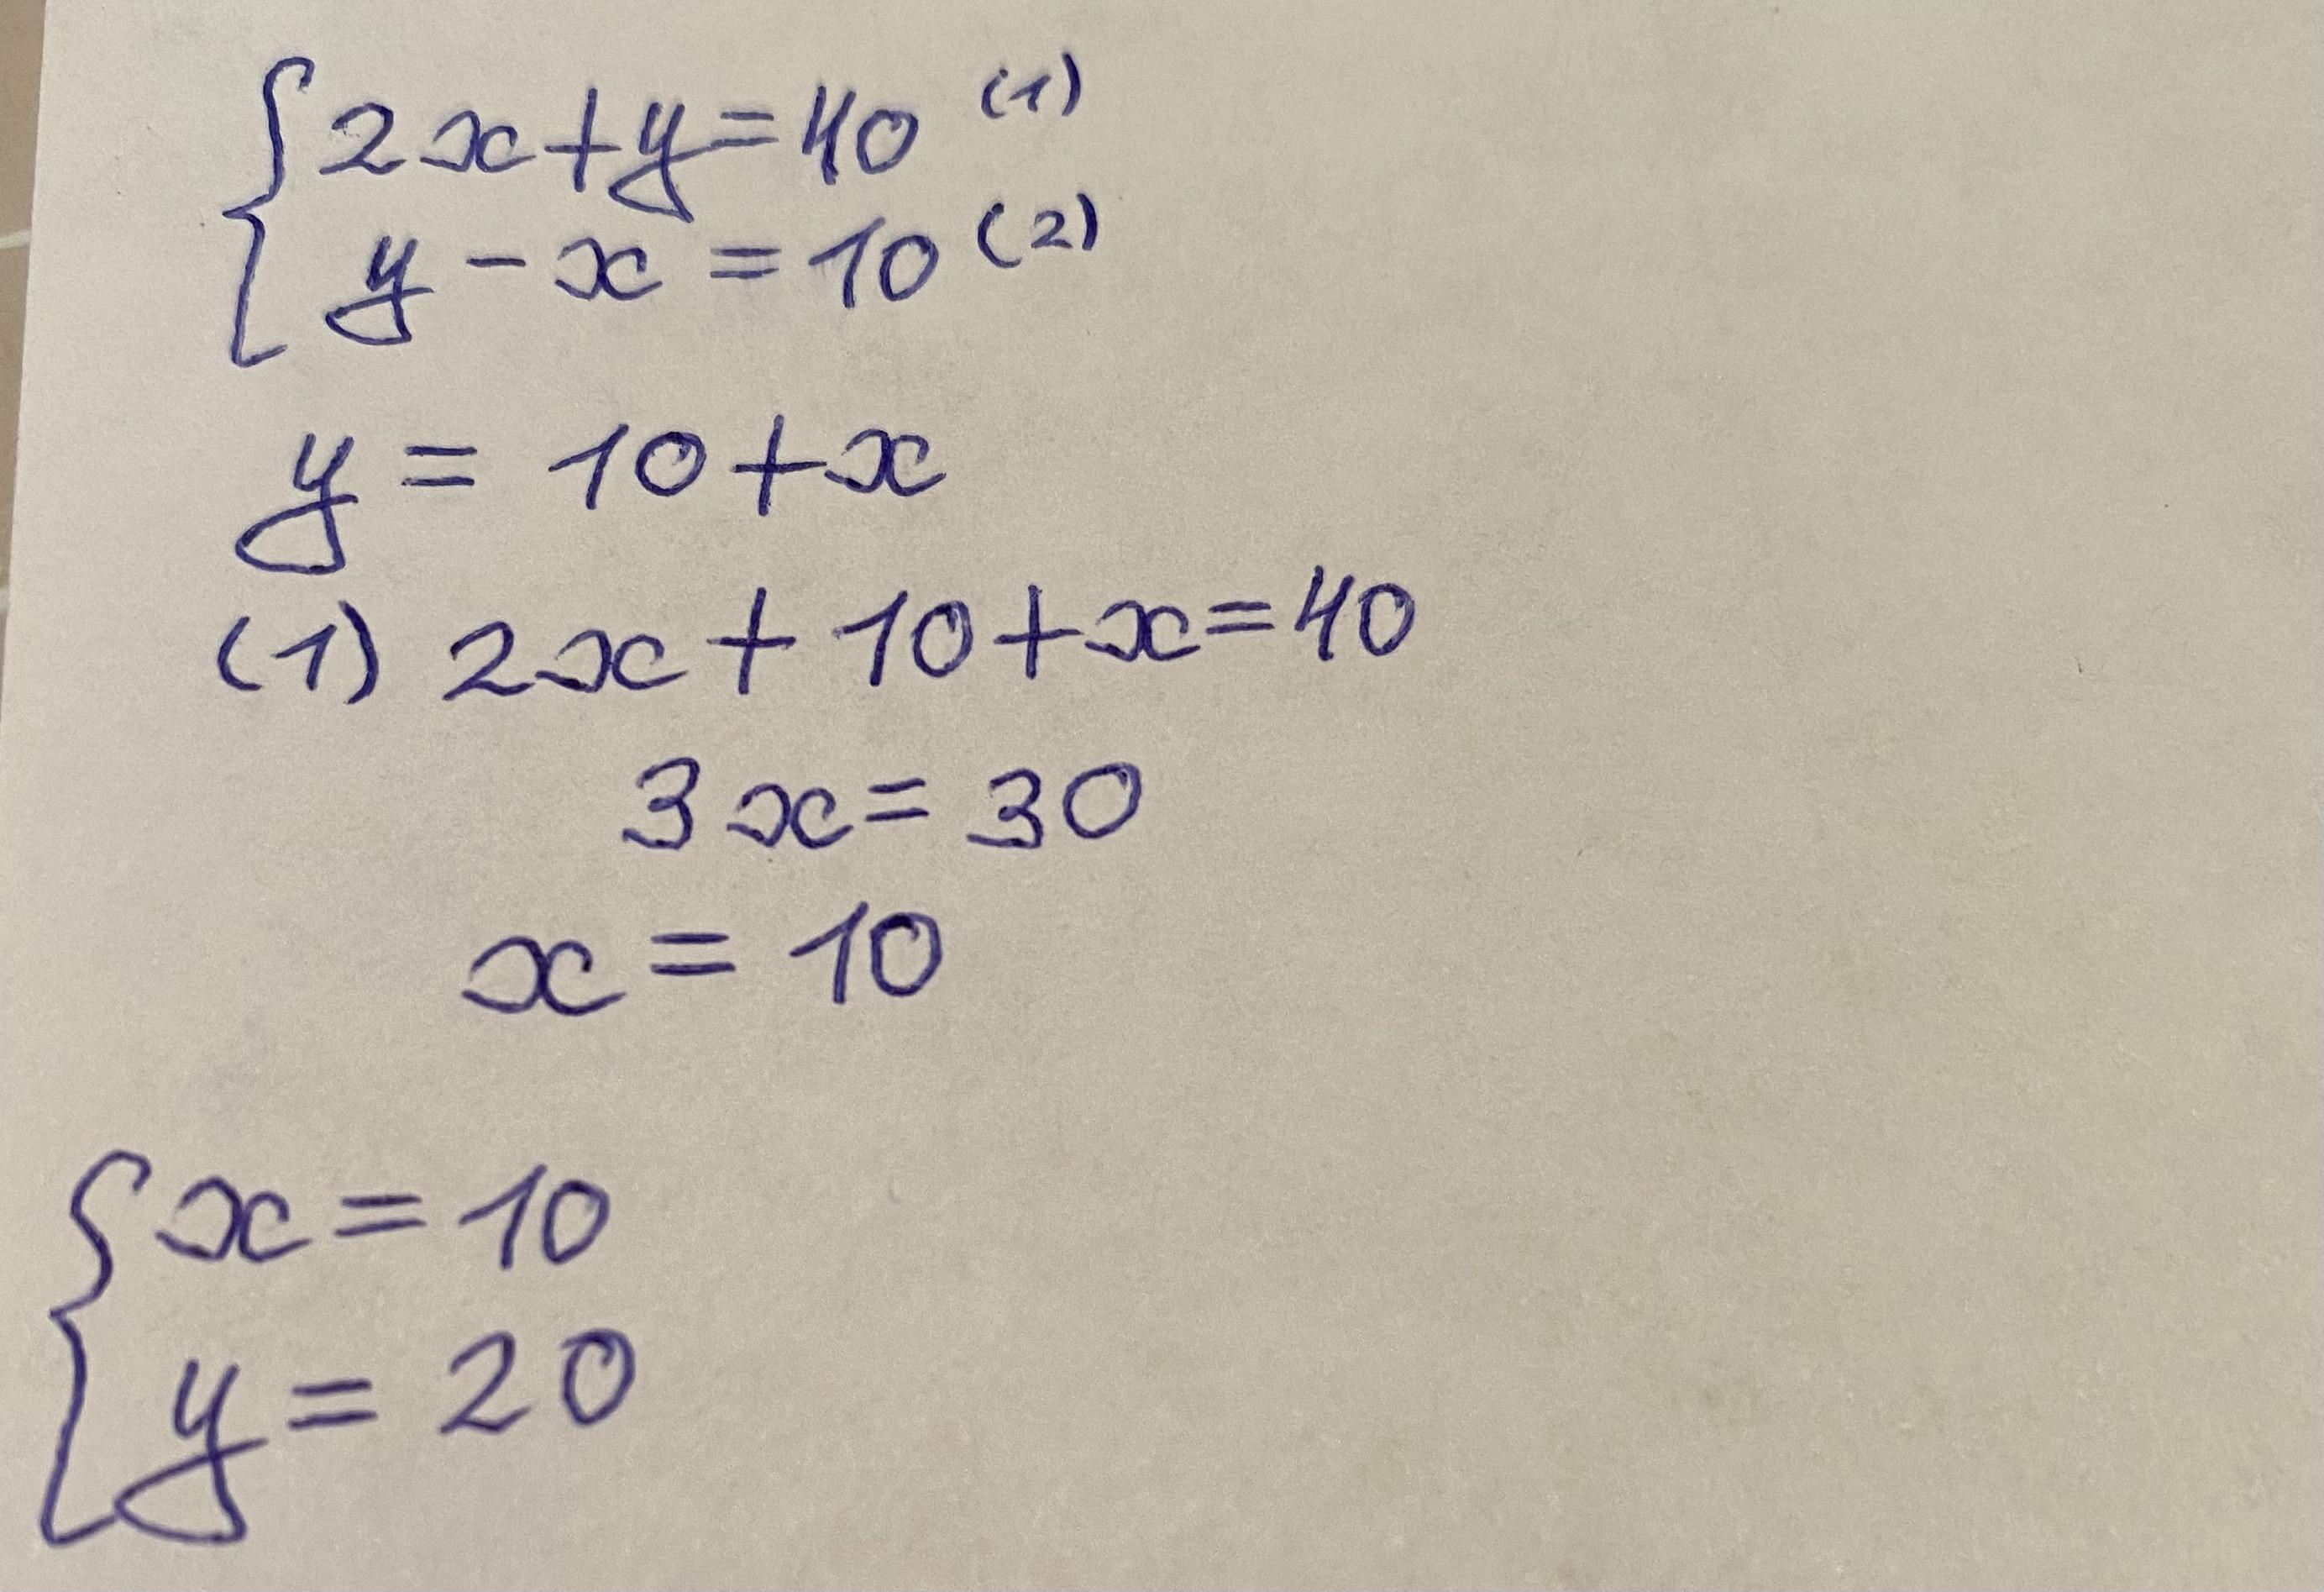 {2x+y=40 (1)
{y-x=10 (2)
y=10+x
(1) 2x+10+x=40
3x=30
x=10
{x=10
{y=20